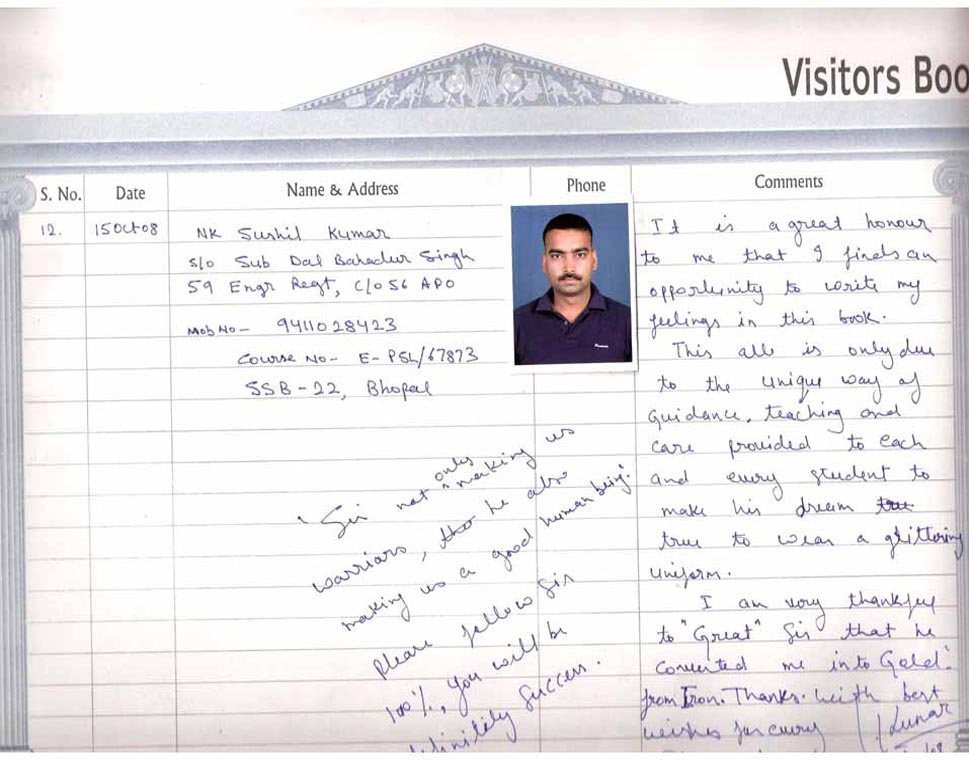 Visitors Boo
S. No.
Date
Name & Address
Phone
Comments
12.
15 Oct 08
NK Sushil Kumar
S/o Sub Dal Bahadur Singh
59 Engr Regt, C/o 56 APO
Mob No - 9411028423
Course No - E-PSL/67873
SSB-22, Bhopal
"Sir not only making us
warriors, he also
making us a good human being."
Please follow Sir
100%, You will be
definitily success.
It is a great honour
to me that I finds an
opportunity to write my
feelings in this book.
This all is only due
to the unique way of
Guidance, teaching and
care provided to each
and every student to
make his dream true
true to wear a glittering
uniform.
I am very thankful
to "Great" Sir that he
converted me into Gold
from Iron. Thanks. With best
wishes for every
Kumar